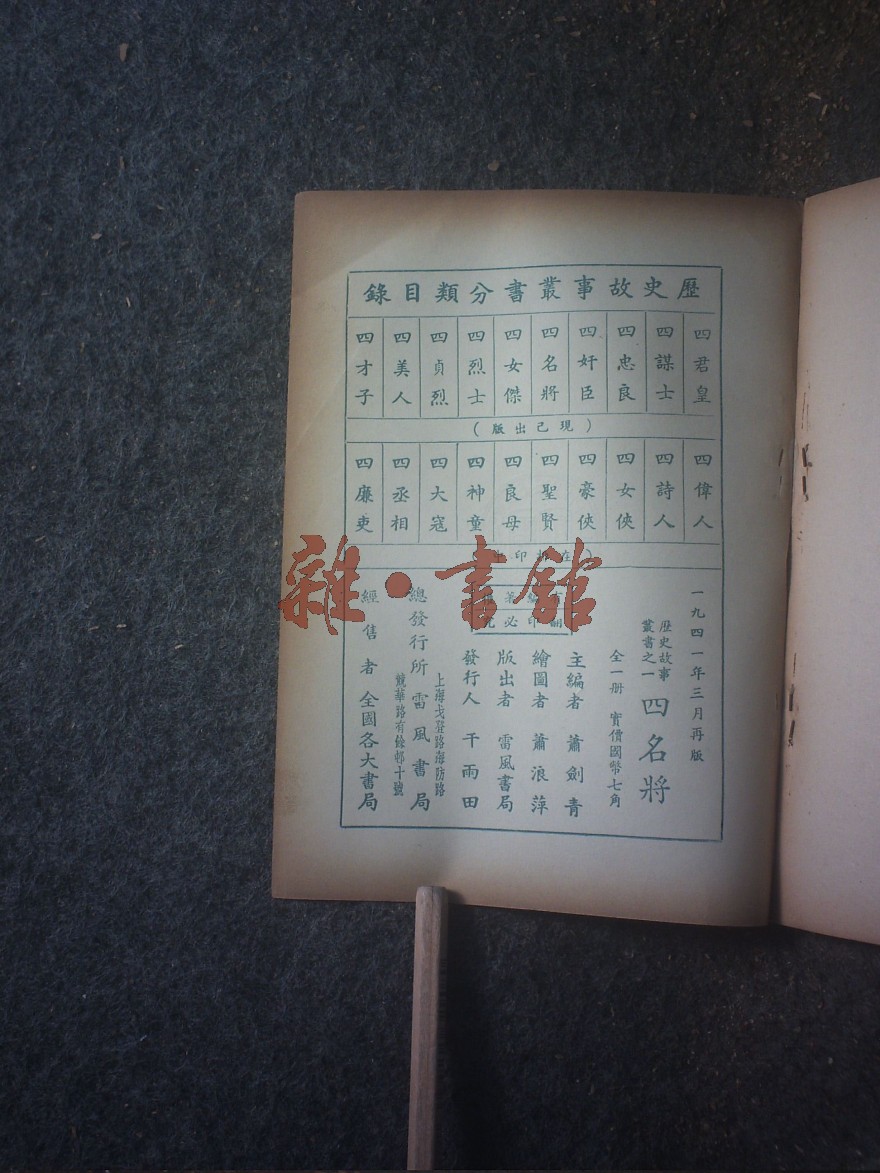 歷史故事叢書分類目錄
四君皇
四謀士
四忠良
四奸臣
四名將
四女傑
四烈士
四貞烈
四美人
四才子
(現已出版)
四偉人
四詩人
四女俠
四豪俠
四聖賢
四良母
四神童
四大寇
四丞相
四廉吏
一九四一年三月再版
歷史故事
叢書之一
四名將
全一冊 實價國幣七角
主編者 蕭劍青
繪圖者 蕭浪萍
版出者 雷風書局
發行人 千雨田
上海戈登路海防路
總發行所 雷風書局
競華路有餘邨十號
經售者 全國各大書局
雜·書館